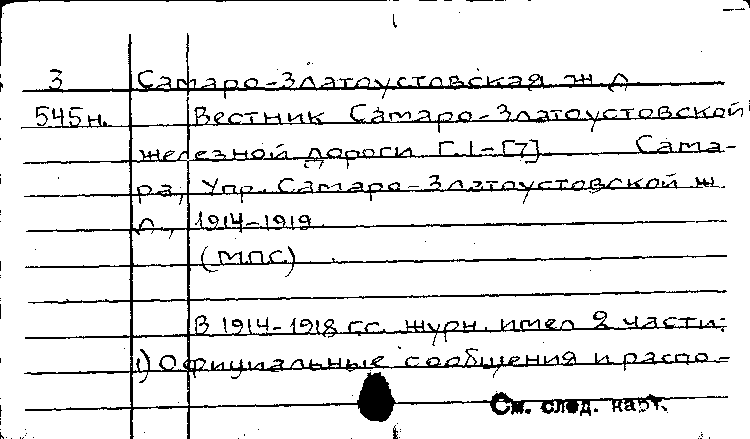 3 Самаро-Златоустовская ж. д.
545н. Вестник Самаро-Златоустовской
железной дороги Г. 1-[7]. Сама-
ра, Упр. Самаро-Златоустовской ж.
д., 1914-1919.
(МПС)
В 1914-1918 г.г. журн. имел 2 части:
1) Официальные сообщения и распо-
См. след. карт.